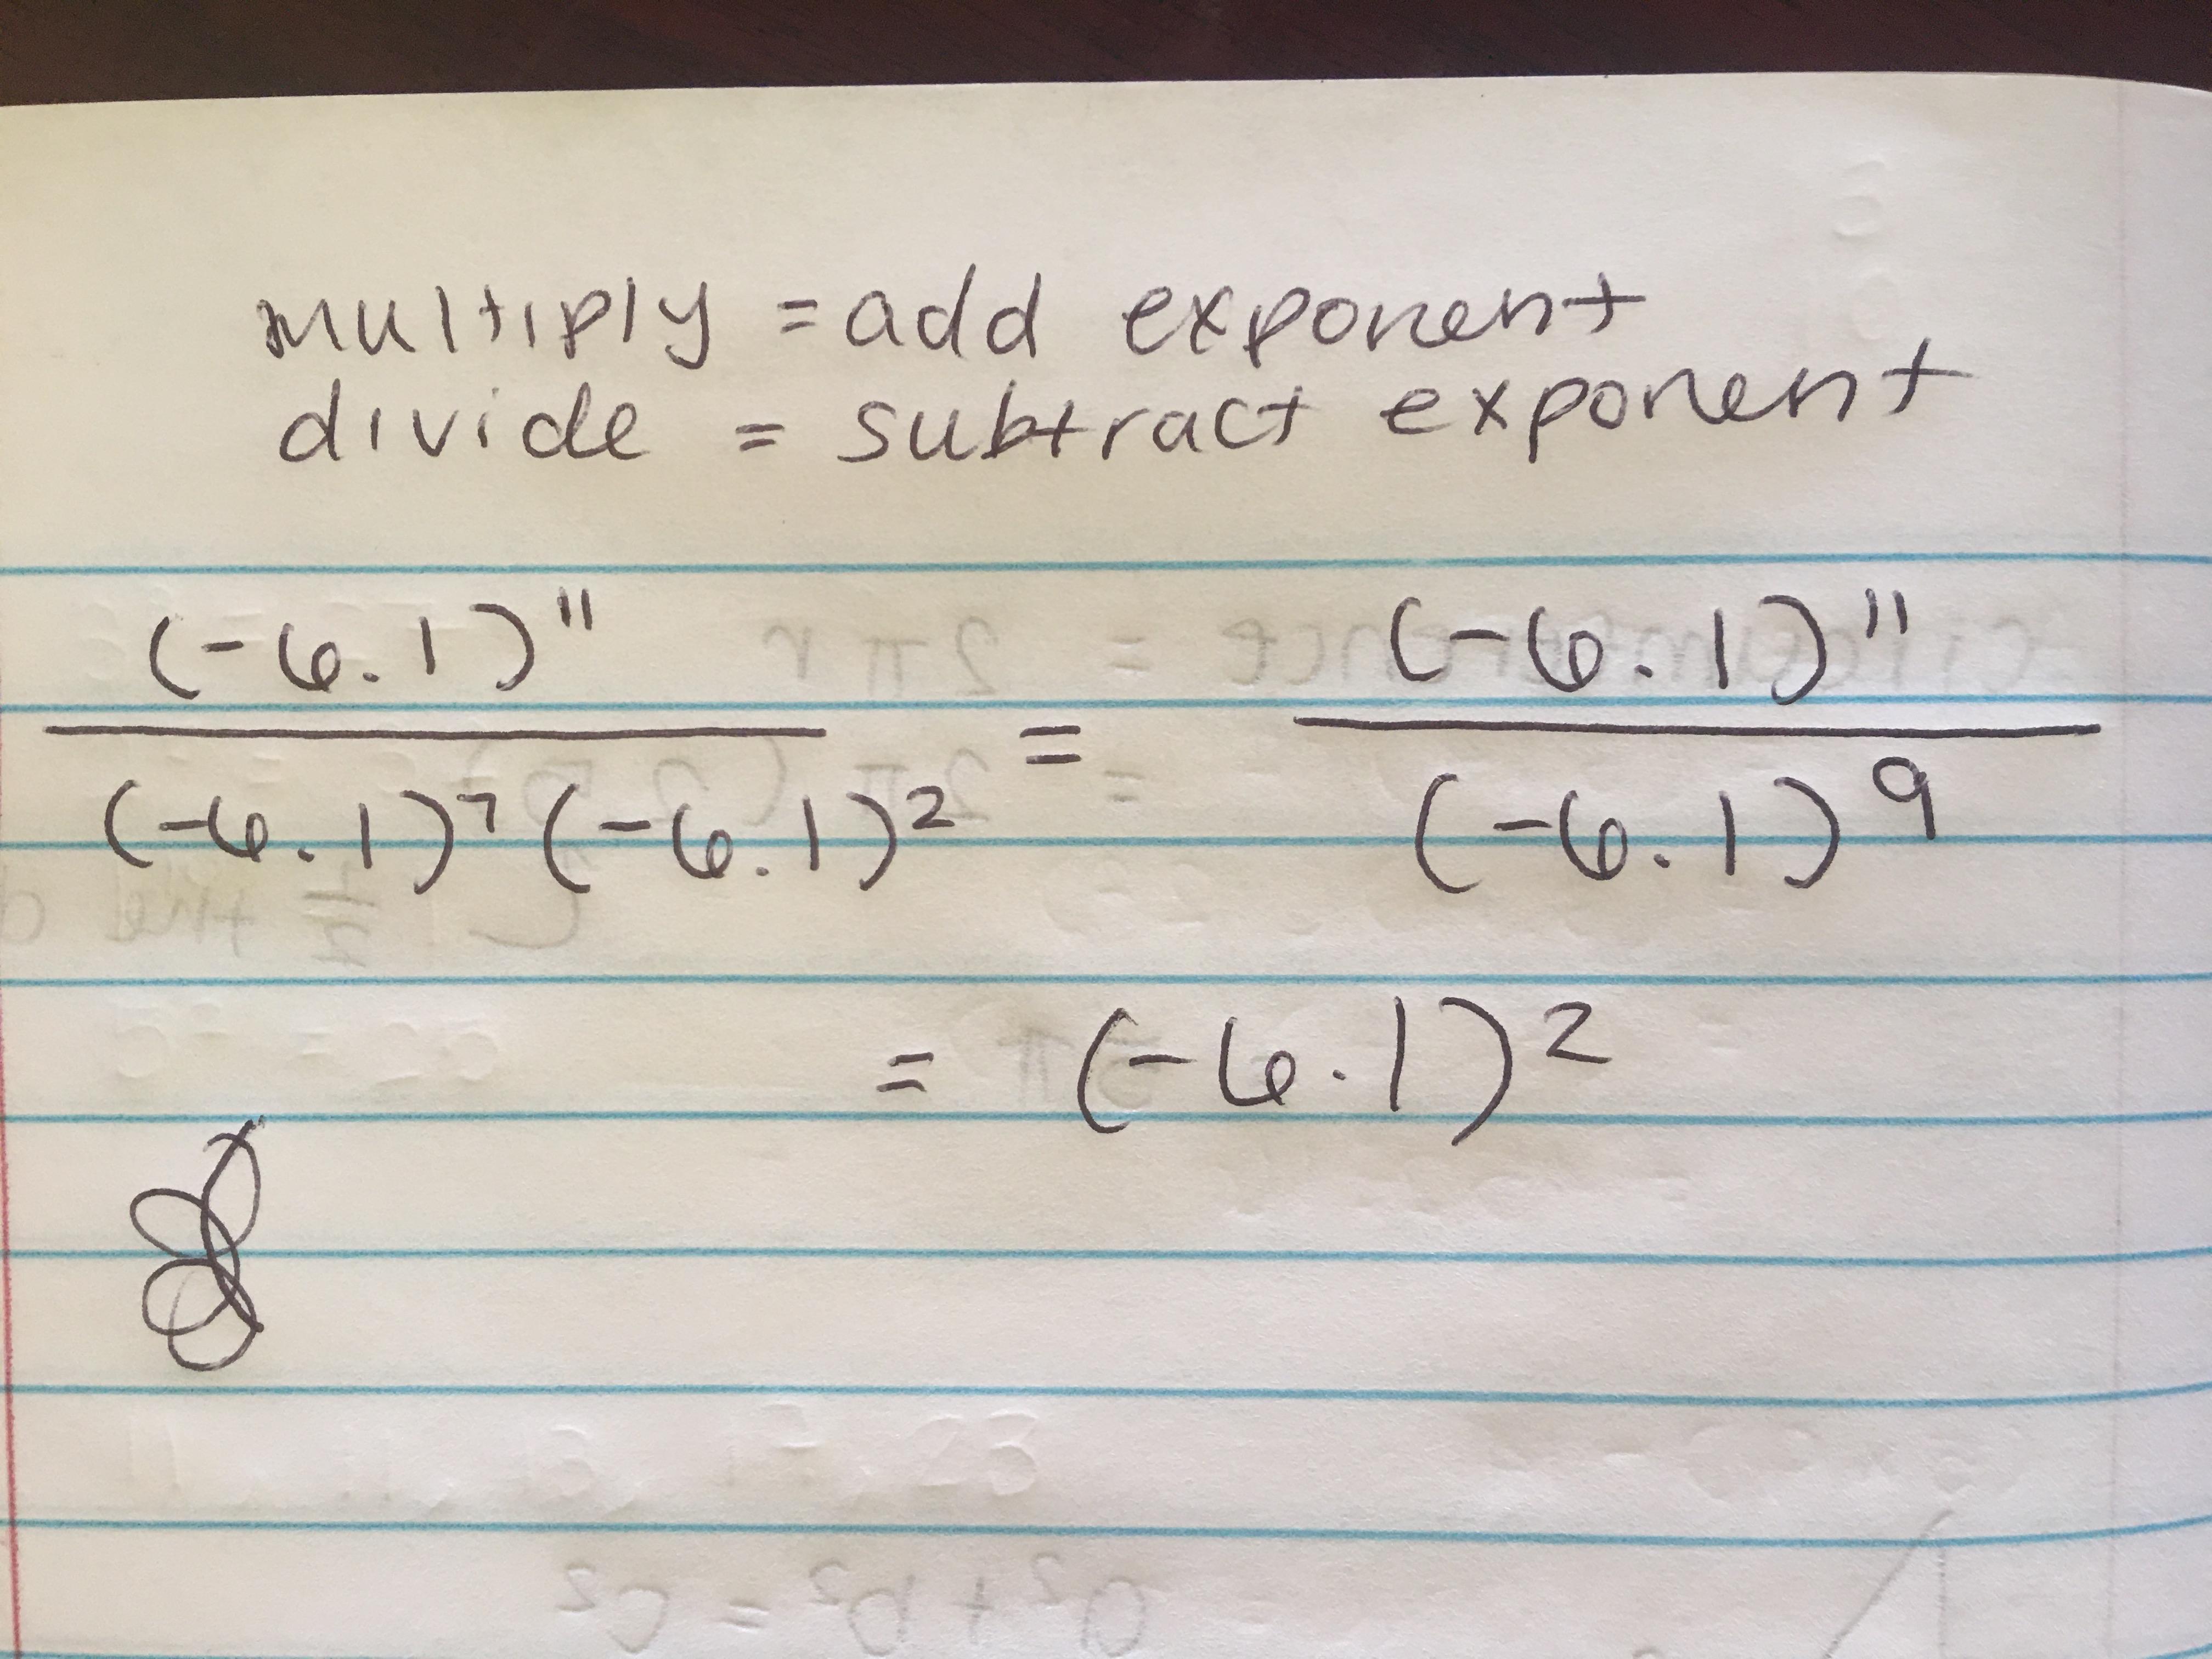 multiply = add exponent
divide = subtract exponent
(-6.1)^11 / (-6.1)^7 (-6.1)^2 = (-6.1)^11 / (-6.1)^9
= (-6.1)^2